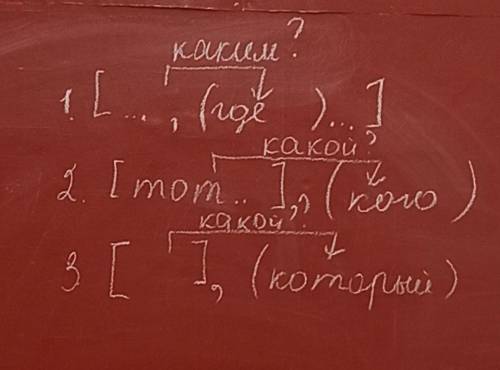 каким?
1. [ ... , (где ) ... ]
какой?
2. [ тот .. ] , (кого )
какой?
3 [ ] , (который)